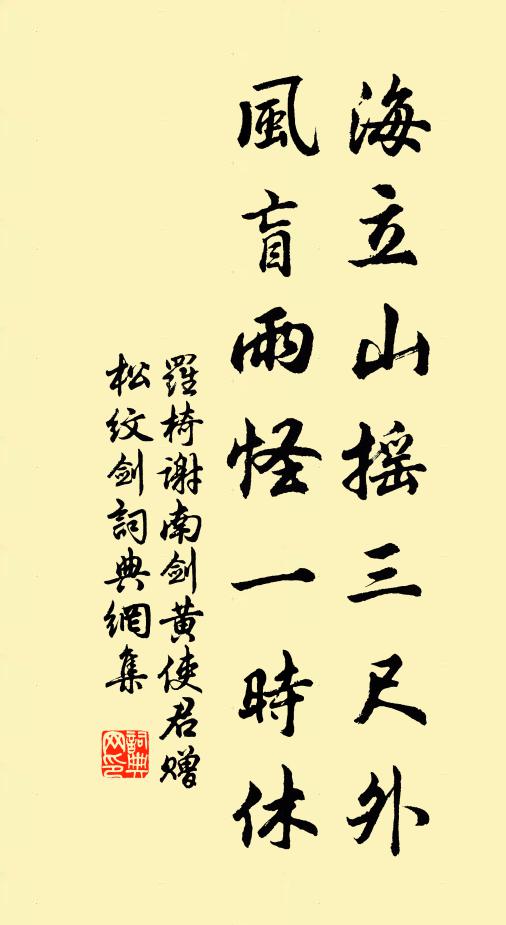 海立山摇三尺外
風盲雨怪一時休
羅椅谢南剑黄使君赠
松纹剑詞典網集
詞典網印